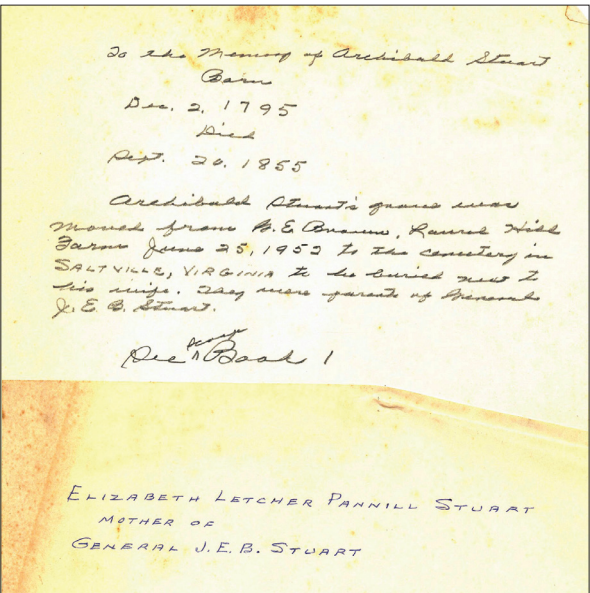 To the Memory of Archibald Stuart
Born
Dec. 2, 1795
Died
Sept. 20, 1855
Archibald Stuart's grave was
moved from G.E. Brown, Laurel Hill
Farm June 25, 1952 to the cemetery in
SALTVILLE, VIRGINIA to be buried next to
his wife. They were parents of General
J. E. B. Stuart.
scrap
See ^ Book 1
ELIZABETH LETCHER PANNILL STUART
MOTHER OF
GENERAL J.E.B. STUART